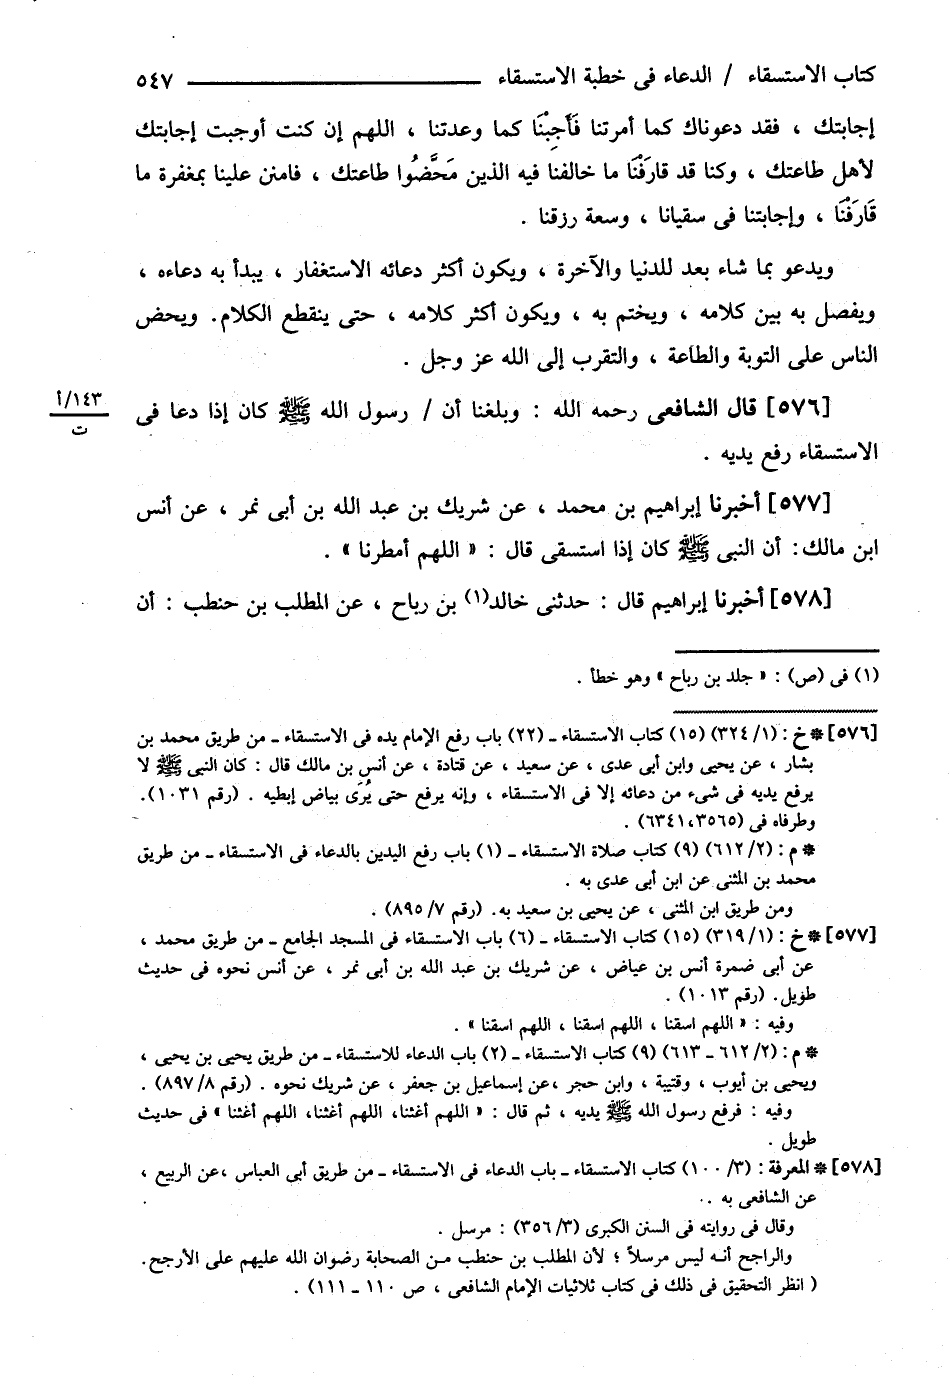 كتاب الاستسقاء / الدعاء فى خطبة الاستسقاء ٥٤٧
إجابتك ، فقد دعوناك كما أمرتنا فَأَجِبْنَا كما وعدتنا ، اللهم إن كنت أوجبت إجابتك
لأهل طاعتك ، وكنا قد قارَفْنَا ما خالفنا فيه الذين مَحَّضُوا طاعتك ، فامنن علينا بمغفرة ما
قَارَفْنَا ، وإجابتنا فى سقيانا ، وسعة رزقنا .
ويدعو بما شاء بعد للدنيا والآخرة ، ويكون أكثر دعائه الاستغفار ، يبدأ به دعاءه ،
ويفصل به بين كلامه ، ويختم به ، ويكون أكثر كلامه ، حتى ينقطع الكلام. ويحض
الناس على التوبة والطاعة ، والتقرب إلى الله عز وجل .
[٥٧٦] قال الشافعى رحمه الله : وبلغنا أن / رسول الله ﷺ كان إذا دعا فى
١٤٣/أ
ت
الاستسقاء رفع يديه .
[٥٧٧] أخبرنا إبراهيم بن محمد ، عن شريك بن عبد الله بن أبى نمر ، عن أنس
ابن مالك: أن النبى ﷺ كان إذا استسقى قال : « اللهم أمطرنا » .
[٥٧٨] أخبرنا إبراهيم قال : حدثنى خالد(١) بن رباح ، عن المطلب بن حنطب : أن
(١) فى (ص) : « جلد بن رباح » وهو خطأ .
[٥٧٦] * خ : (١/ ٣٢٤) (١٥) كتاب الاستسقاء ـ (٢٢) باب رفع الإمام يده فى الاستسقاء ـ من طريق محمد بن
بشار ، عن يحيى وابن أبى عدى ، عن سعيد ، عن قتادة ، عن أنس بن مالك قال : كان النبى ﷺ لا
يرفع يديه فى شىء من دعائه إلا فى الاستسقاء ، وإنه يرفع حتى يُرَى بياض إبطيه . (رقم ١٠٣١).
وطرفاه فى (٣٥٦٥، ٦٣٤١) .
* م : (٢/ ٦١٢) (٩) كتاب صلاة الاستسقاء ـ (١) باب رفع اليدين بالدعاء فى الاستسقاء ـ من طريق
محمد بن المثنى عن ابن أبى عدى به .
ومن طريق ابن المثنى ، عن يحيى بن سعيد به. (رقم ٧/ ٨٩٥) .
[٥٧٧] * خ : (١/ ٣١٩) (١٥) كتاب الاستسقاء ـ (٦) باب الاستسقاء فى المسجد الجامع ـ من طريق محمد ،
عن أبى ضمرة أنس بن عياض ، عن شريك بن عبد الله بن أبى نمر ، عن أنس نحوه فى حديث
طويل. (رقم ١٠١٣) .
وفيه : « اللهم اسقنا ، اللهم اسقنا ، اللهم اسقنا » .
* م : (٢/ ٦١٢ ـ ٦١٣) (٩) كتاب الاستسقاء ـ (٢) باب الدعاء للاستسقاء ـ من طريق يحيى بن يحيى ،
ويحيى بن أيوب ، وقتيبة ، وابن حجر ،عن إسماعيل بن جعفر ، عن شريك نحوه . (رقم ٨/ ٨٩٧) .
وفيه : فرفع رسول الله ﷺ يديه ، ثم قال : « اللهم أغثنا، اللهم أغثنا، اللهم أغثنا » فى حديث
طويل .
[٥٧٨] * المعرفة : (٣/ ١٠٠) كتاب الاستسقاء ـ باب الدعاء فى الاستسقاء ـ من طريق أبى العباس ،عن الربيع ،
عن الشافعى به .
وقال فى روايته فى السنن الكبرى (٣/ ٣٥٦) : مرسل .
والراجح أنه ليس مرسلاً ؛ لأن المطلب بن حنطب من الصحابة رضوان الله عليهم على الأرجح.
( انظر التحقيق فى ذلك فى كتاب ثلاثيات الإمام الشافعى ، ص ١١٠ ـ ١١١) .